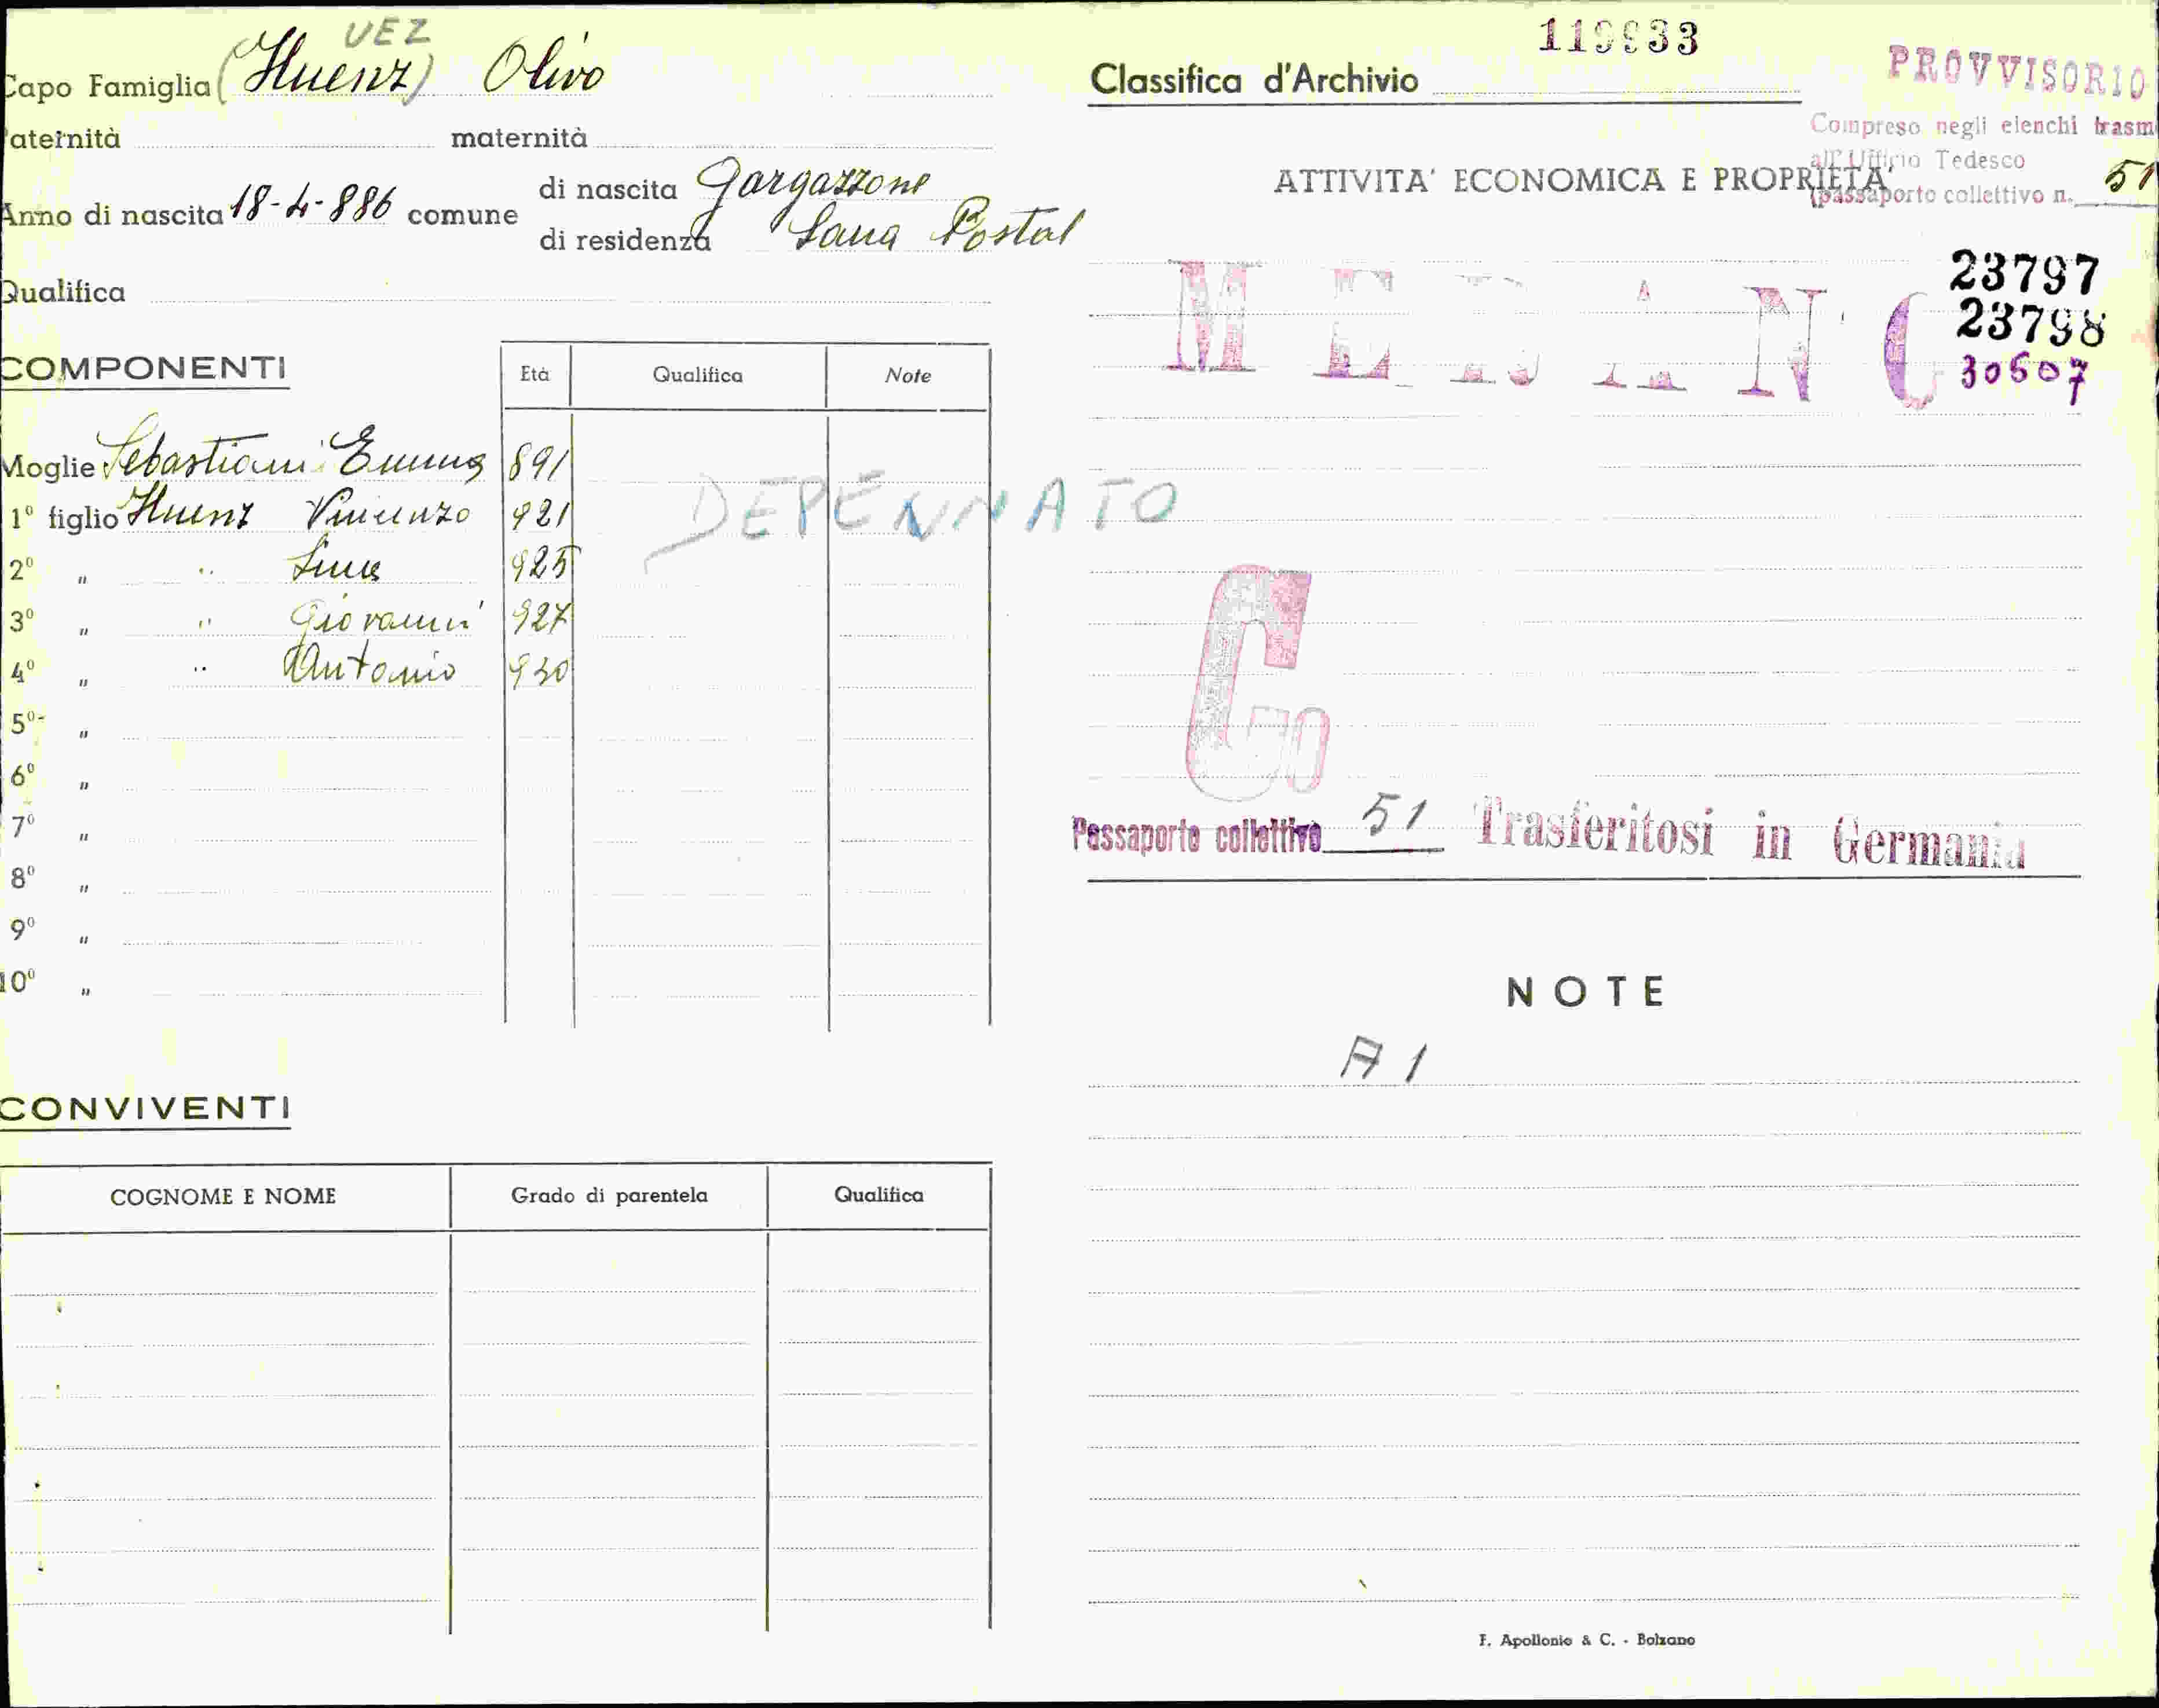 VEZ
Capo Famiglia (Huenz) Olivo
aternità maternità
Anno di nascita 18-4-886 comune di nascita Gargazzone
di residenza Lana Postal
Qualifica
COMPONENTI Età Qualifica Note
Moglie Sebastiani Emma 891
1º figlio Huenz Vincenzo 921
2º " " Lina 925
3º " " Giovanni 927
4º " " Antonio 930
5º "
6º "
7º "
8º "
9º "
10º "
DEPENNATO
CONVIVENTI
COGNOME E NOME Grado di parentela Qualifica
119933
Classifica d'Archivio
PROVVISORIO
Compreso negli elenchi trasm
all'Ufficio Tedesco
(passaporto collettivo n. 51
ATTIVITA' ECONOMICA E PROPRIETA'
MERANO
23797
23798
30607
Passaporto collettivo 51 Trasferitosi in Germania
NOTE
A 1
F. Apollonio & C. - Bolzano